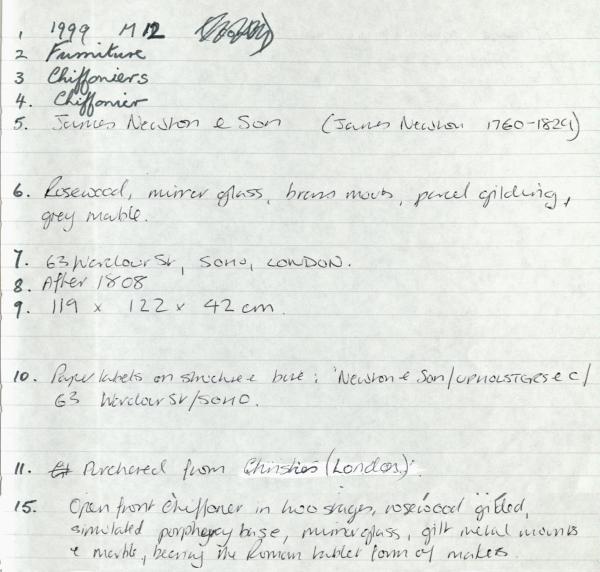 1, 1999 M12
2 Furniture
3 Chiffoniers
4. Chiffonier
5. James Newton & Son (James Newton 1760-1829)
6. Rosewood, mirror glass, brass mouts, parcel gilding,
grey marble.
7. 63 Wardour St, SOHO, LONDON.
8. After 1808
9. 119 x 122 x 42 cm.
10. Paper labels on structure base: 'Newton & Son/UPHOLSTERS & C/
63 Wardour St/SOHO.
11. Purchased from Christies (London).
15. Open front Chiffoner in two stages, rosewood gilded,
simulated porphyry base, mirror glass, gilt metal mounts
& marble, bearing the Roman tablet form of makers.